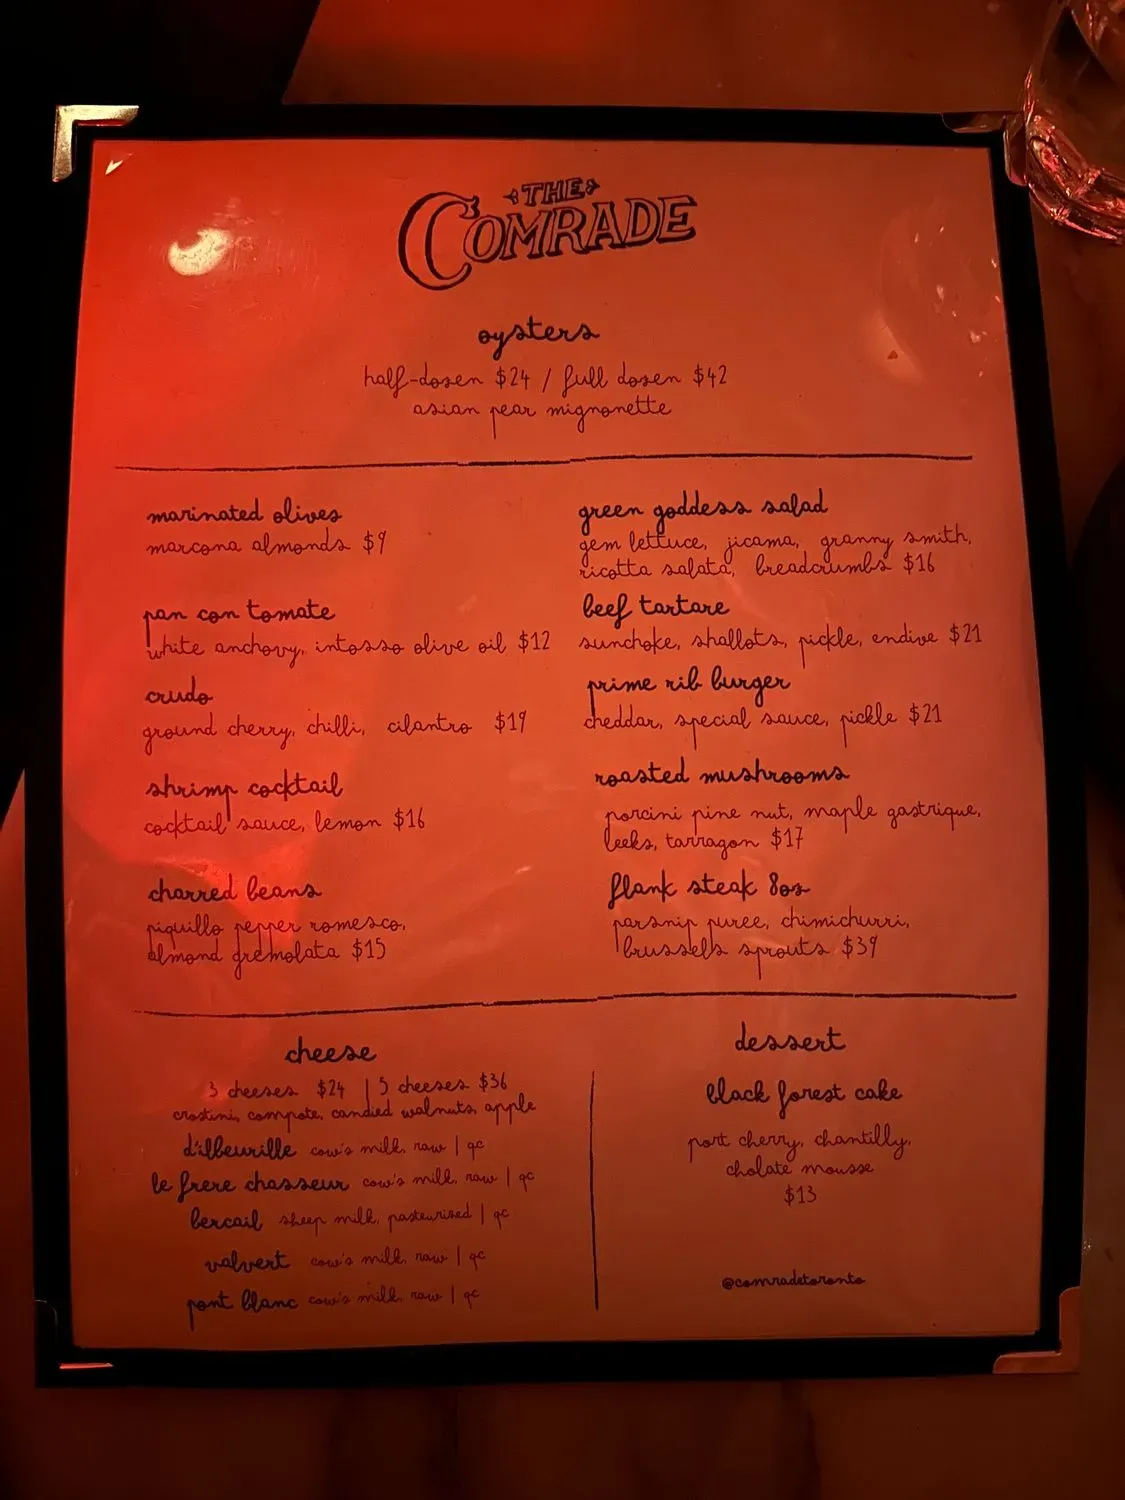 THE
COMRADE
oysters
half-dozen $24 / full dozen $42
asian pear mignonette
marinated olives
marcona almonds $9
pan con tomate
white anchovy, intosso olive oil $12
crudo
ground cherry, chilli, cilantro $19
shrimp cocktail
cocktail sauce, lemon $16
charred beans
piquillo pepper romesco,
almond gremolata $15
green goddess salad
gem lettuce, jicama, granny smith,
ricotta salata, breadcrumbs $16
beef tartare
sunchoke, shallots, pickle, endive $21
prime rib burger
cheddar, special sauce, pickle $21
roasted mushrooms
porcini pine nut, maple gastrique,
leeks, tarragon $17
flank steak 8oz
parsnip puree, chimichurri,
brussels sprouts $39
cheese
3 cheeses $24 | 5 cheeses $36
crostini, compote, candied walnuts, apple
d'ilbeurille cow's milk, raw | qc
le frere chasseur cow's milk, raw | qc
bercail sheep milk, pasteurized | qc
valvert cow's milk, raw | qc
pont blanc cow's milk, raw | qc
dessert
black forest cake
port cherry, chantilly,
cholate mousse
$13
@comradetoronto